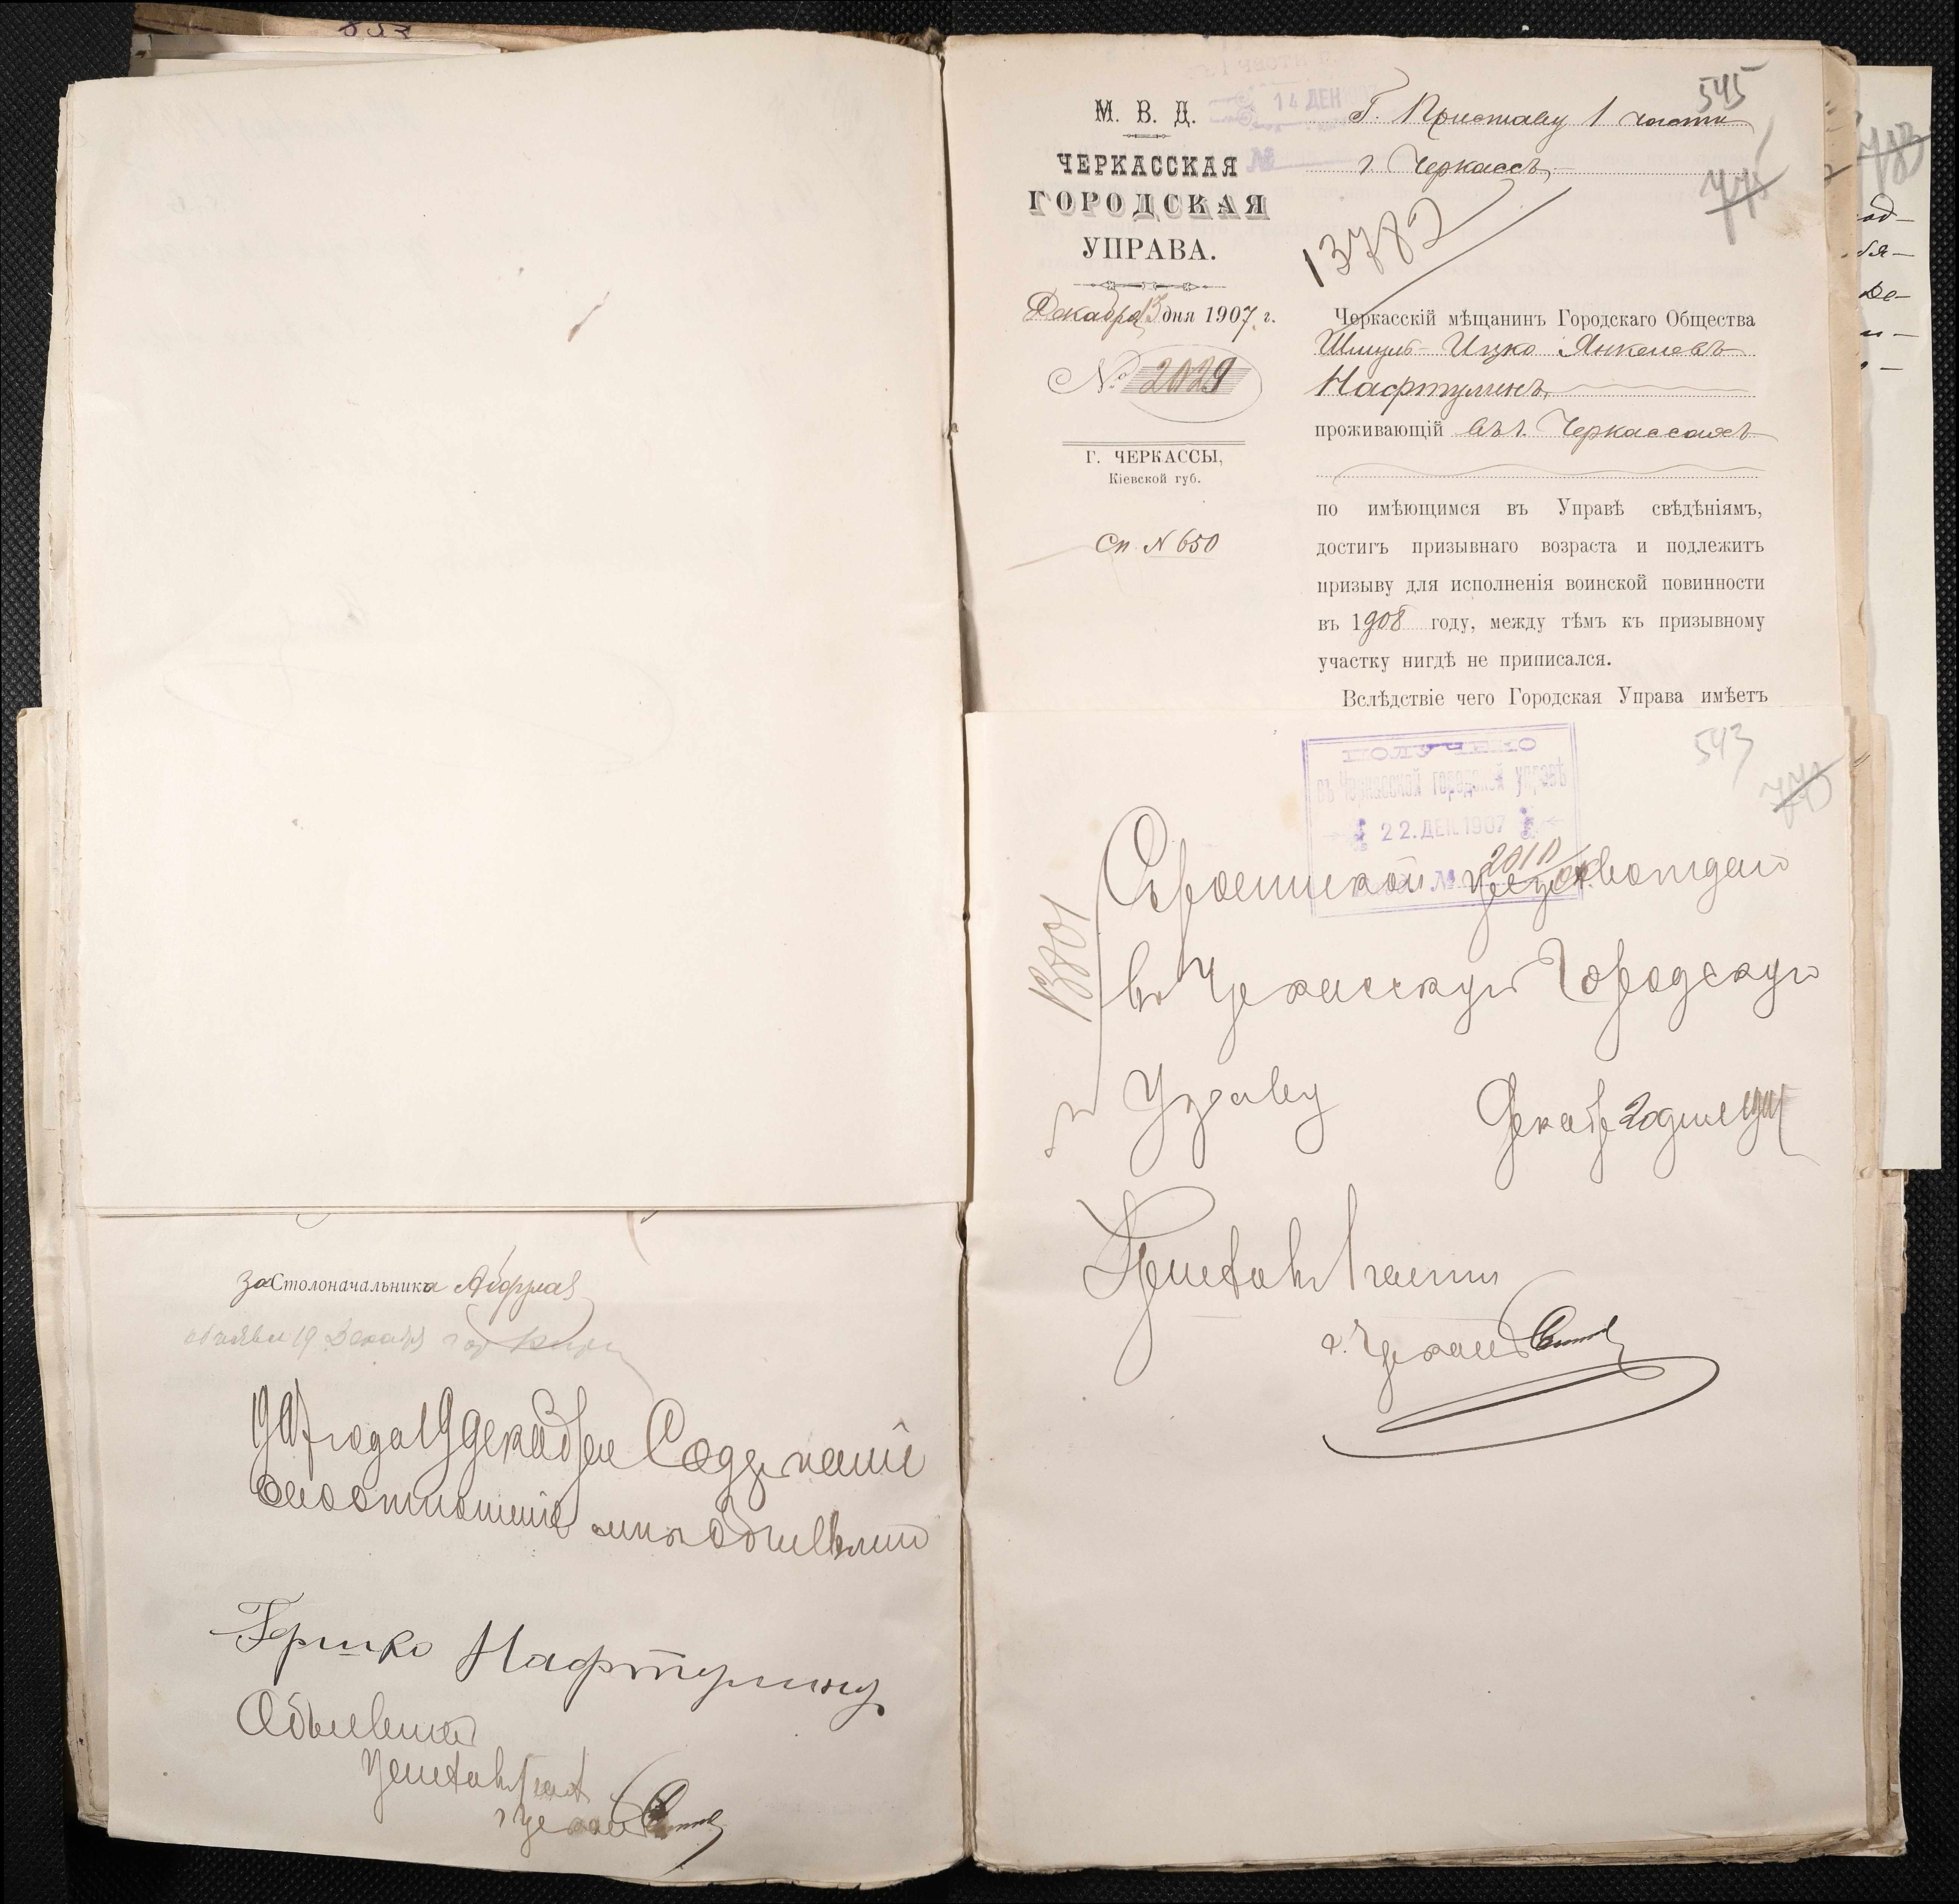 545
775
М. В. Д.
ЧЕРКАССКАЯ
ГОРОДСКАЯ
УПРАВА.
Декабря 13 дня 1907 г.
№ 2029
Г. ЧЕРКАССЫ,
Кіевской губ.
Сп. N 650
14 ДЕК
№
Г. Приставу 1 части
г. Черкассъ
13782
Черкасскій мѣщанинъ Городскаго Общества
Шмуль-Ицко Янкелевъ
Нафтулинъ,
проживающій въ г. Черкассахъ
по имѣющимся въ Управѣ свѣдѣніямъ,
достигъ призывнаго возраста и подлежитъ
призыву для исполненія воинской повинности
въ 1908 году, между тѣмъ къ призывному
участку нигдѣ не приписался.
Вслѣдствіе чего Городская Управа имѣетъ
543
773
ПОЛУЧЕНО
въ Черкасской городской управѣ
22. ДЕК. 1907
№ 2010
въ Черкасскую Городскую
Управу
Декабр 20 дня 1907
Приставъ 1 части
г. Черкассъ
за Столоначальника
19 Декабря
1907 года 19 декабря Содержаніе
сего отношенія мнѣ объявлено
Гершко Нафтулину
Объявилъ
Приставъ 1 части
г. Черкассъ